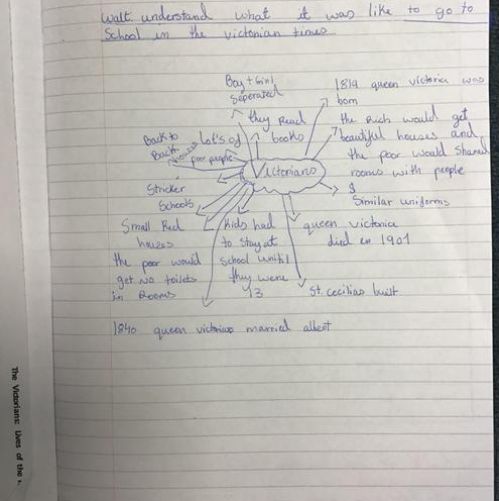 Walt understand what it was like to go to
School in the victorian times
Boy + Girl
Seperated
they Read
books
1819 queen victoria was
born
the Rich would get
beautiful houses and
the poor would shared
rooms with people
Back to
Back
houses
Lot's of
poor people
Victorians
Stricker
Schools
Similar uniforms
Small Red
houses
the poor would
get no toilets
in Rooms
kids had
to stay at
school until
they were
13
queen victoria
died in 1901
St. cecilias built
1840 queen victorias married albert
The Victorians: Lives of the